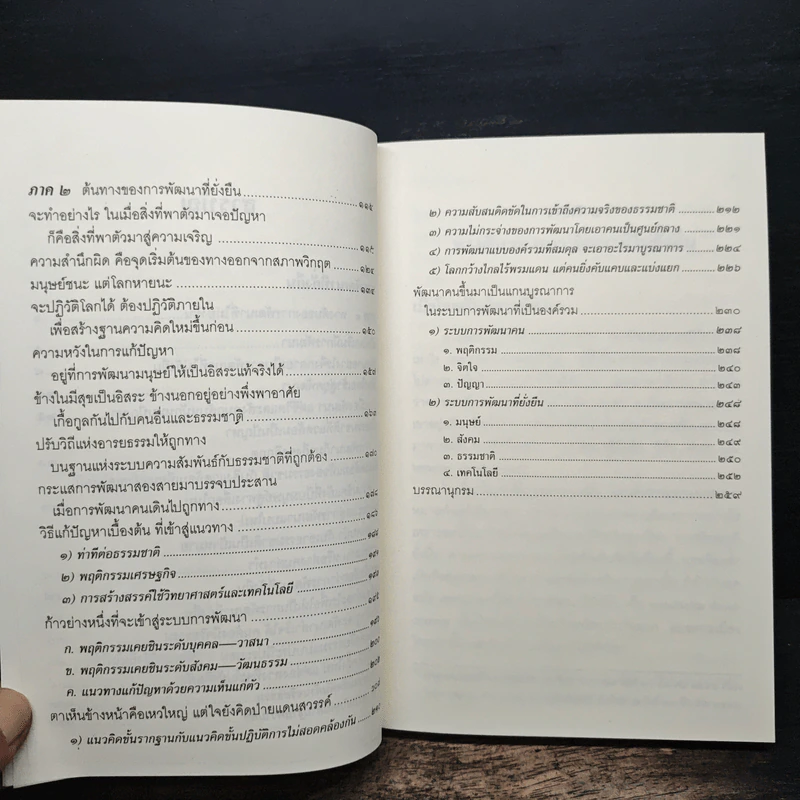 ภาค ๒ ต้นทางของการพัฒนาที่ยั่งยืน ๑๑๕
จะทำอย่างไร ในเมื่อสิ่งที่พาตัวมาเจอปัญหา
ก็คือสิ่งที่พาตัวมาสู่ความเจริญ ๑๑๙
ความสำนึกผิด คือจุดเริ่มต้นของทางออกจากสภาพวิกฤต ๑๒๔
มนุษย์ชนะ แต่โลกหายนะ ๑๓๔
จะปฏิวัติโลกได้ ต้องปฏิวัติภายใน
เพื่อสร้างฐานความคิดใหม่ขึ้นก่อน ๑๕๐
ความหวังในการแก้ปัญหา
อยู่ที่การพัฒนามนุษย์ให้เป็นอิสระแท้จริงได้
ข้างในมีสุขเป็นอิสระ ข้างนอกอยู่อย่างพึ่งพาอาศัย
เกื้อกูลกันไปกับคนอื่นและธรรมชาติ
ปรับวิถีแห่งอารยธรรมให้ถูกทาง
บนฐานแห่งระบบความสัมพันธ์กับธรรมชาติที่ถูกต้อง ๑๘๐
กระแสการพัฒนาสองสายมาบรรจบประสาน
เมื่อการพัฒนาคนเดินไปถูกทาง ๑๘๔
วิธีแก้ปัญหาเบื้องต้น ที่เข้าสู่แนวทาง
๑) ท่าทีต่อธรรมชาติ
๒) พฤติกรรมเศรษฐกิจ
๓) การสร้างสรรค์ใช้วิทยาศาสตร์และเทคโนโลยี
ก้าวย่างหนึ่งที่จะเข้าสู่ระบบการพัฒนา
ก. พฤติกรรมเคยชินระดับบุคคล—วาสนา
ข. พฤติกรรมเคยชินระดับสังคม—วัฒนธรรม
ค. แนวทางแก้ปัญหาด้วยความเห็นแก่ตัว
ตาเห็นข้างหน้าคือเหวใหญ่ แต่ใจยังคิดป่ายแดนสวรรค์
๑) แนวคิดขั้นรากฐานกับแนวคิดขั้นปฏิบัติการไม่สอดคล้องกัน ๒๑๐
๒) ความสับสนคิดขัดในการเข้าถึงความจริงของธรรมชาติ ๒๑๒
๓) ความไม่กระจ่างของการพัฒนาโดยเอาคนเป็นศูนย์กลาง ๒๒๑
๔) การพัฒนาแบบองค์รวมที่สมดุล จะเอาอะไรมาบูรณาการ ๒๒๔
๕) โลกกว้างไกลไร้พรมแดน แต่คนยิ่งคับแคบและแบ่งแยก ๒๒๖
พัฒนาคนขึ้นมาเป็นแกนบูรณาการ
ในระบบการพัฒนาที่เป็นองค์รวม ๒๓๐
๑) ระบบการพัฒนาคน ๒๓๘
๑. พฤติกรรม ๒๓๘
๒. จิตใจ ๒๔๐
๓. ปัญญา ๒๔๓
๒) ระบบการพัฒนาที่ยั่งยืน ๒๔๘
๑. มนุษย์ ๒๔๘
๒. สังคม ๒๔๙
๓. ธรรมชาติ ๒๕๐
๔. เทคโนโลยี ๒๕๒
บรรณานุกรม ๒๕๙